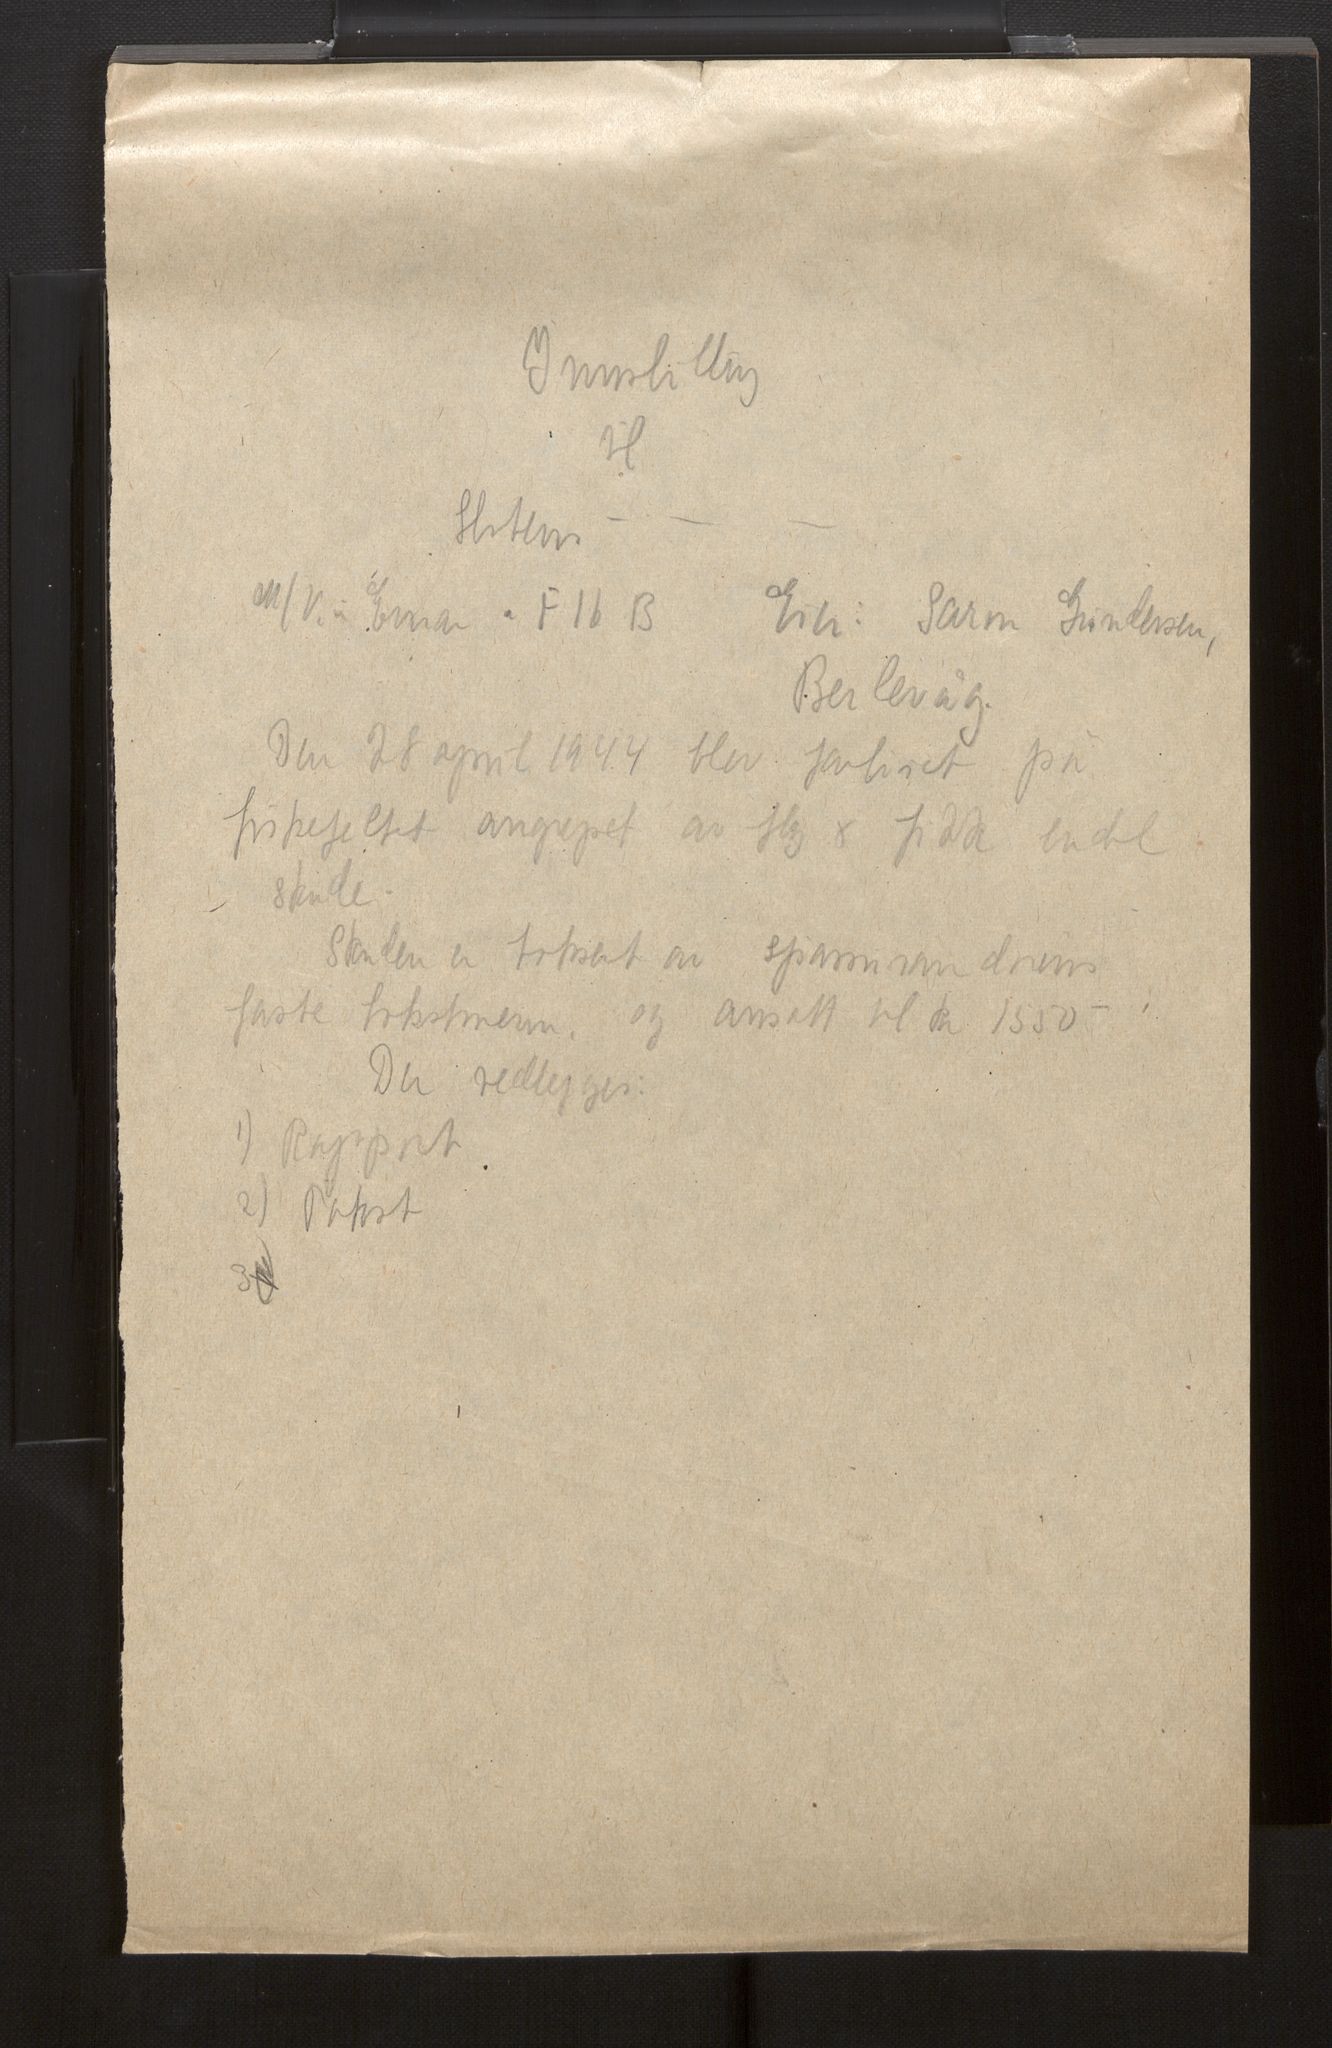 Innstilling
til
Statens - - -
M/K "Erna" F 16 B Eier: Sarm Gundersen,
Berlevåg.
Den 28 april 1944 blev fartøiet på
fiskefeltet angrepet av fly & fikk endel
skade.
Skaden er taksert av
faste takstmenn, og ansatt til kr 1550-
Der vedlegges:
1) Rapport
2) Takst
3)